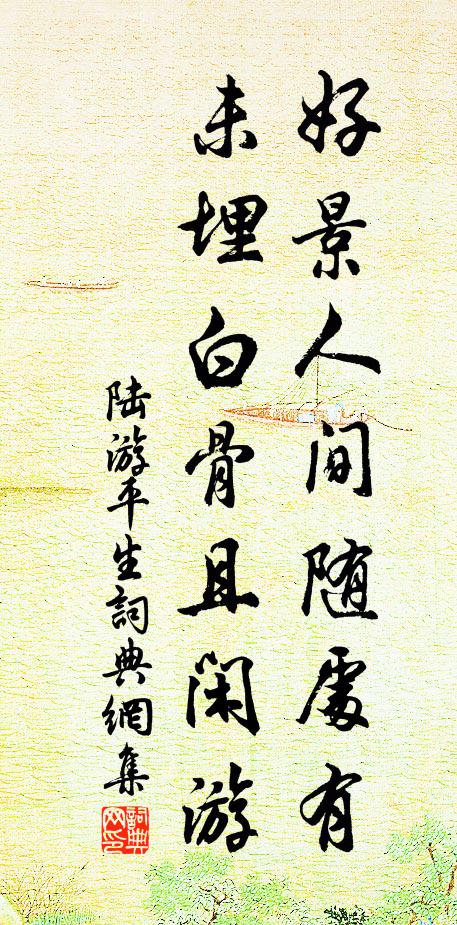 好景人间随處有
未埋白骨且闲游
陆游平生詞典網集
詞典網印